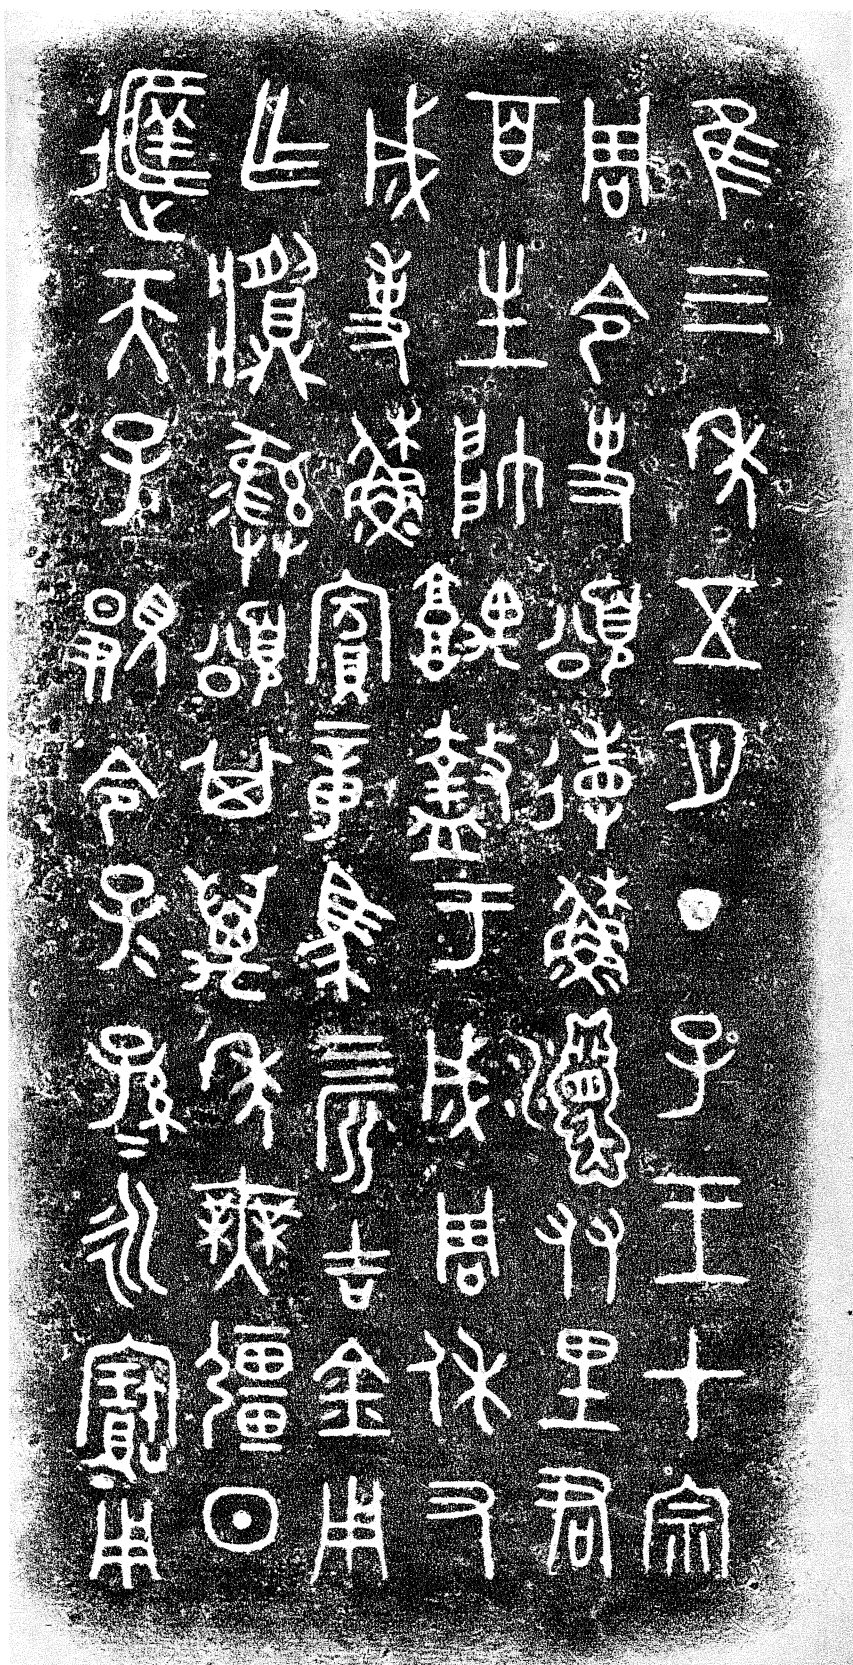 隹三年五月丁巳王才宗
周令史頌省穌友里君
百生帥盩于成周休又
成事穌賓章馬亖匹吉金用
乍䵼彝頌其萬年無疆日
天子顯令子=孫=永寶用